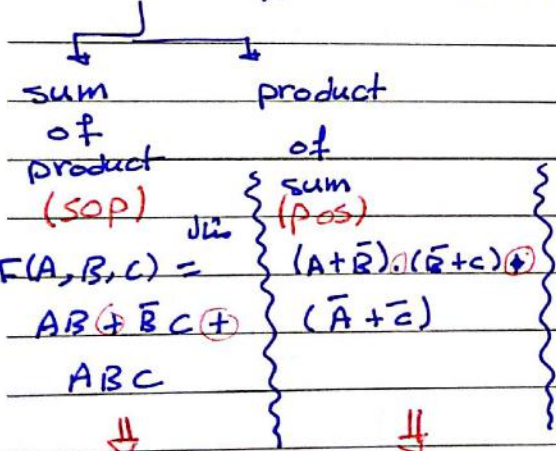 sum
of
product
(SOP)
مثال
F(A,B,C) =
AB + B̅C +
ABC
product
of
sum
(POS)
(A+B̅).(B̅+C).
(A̅+C̅)